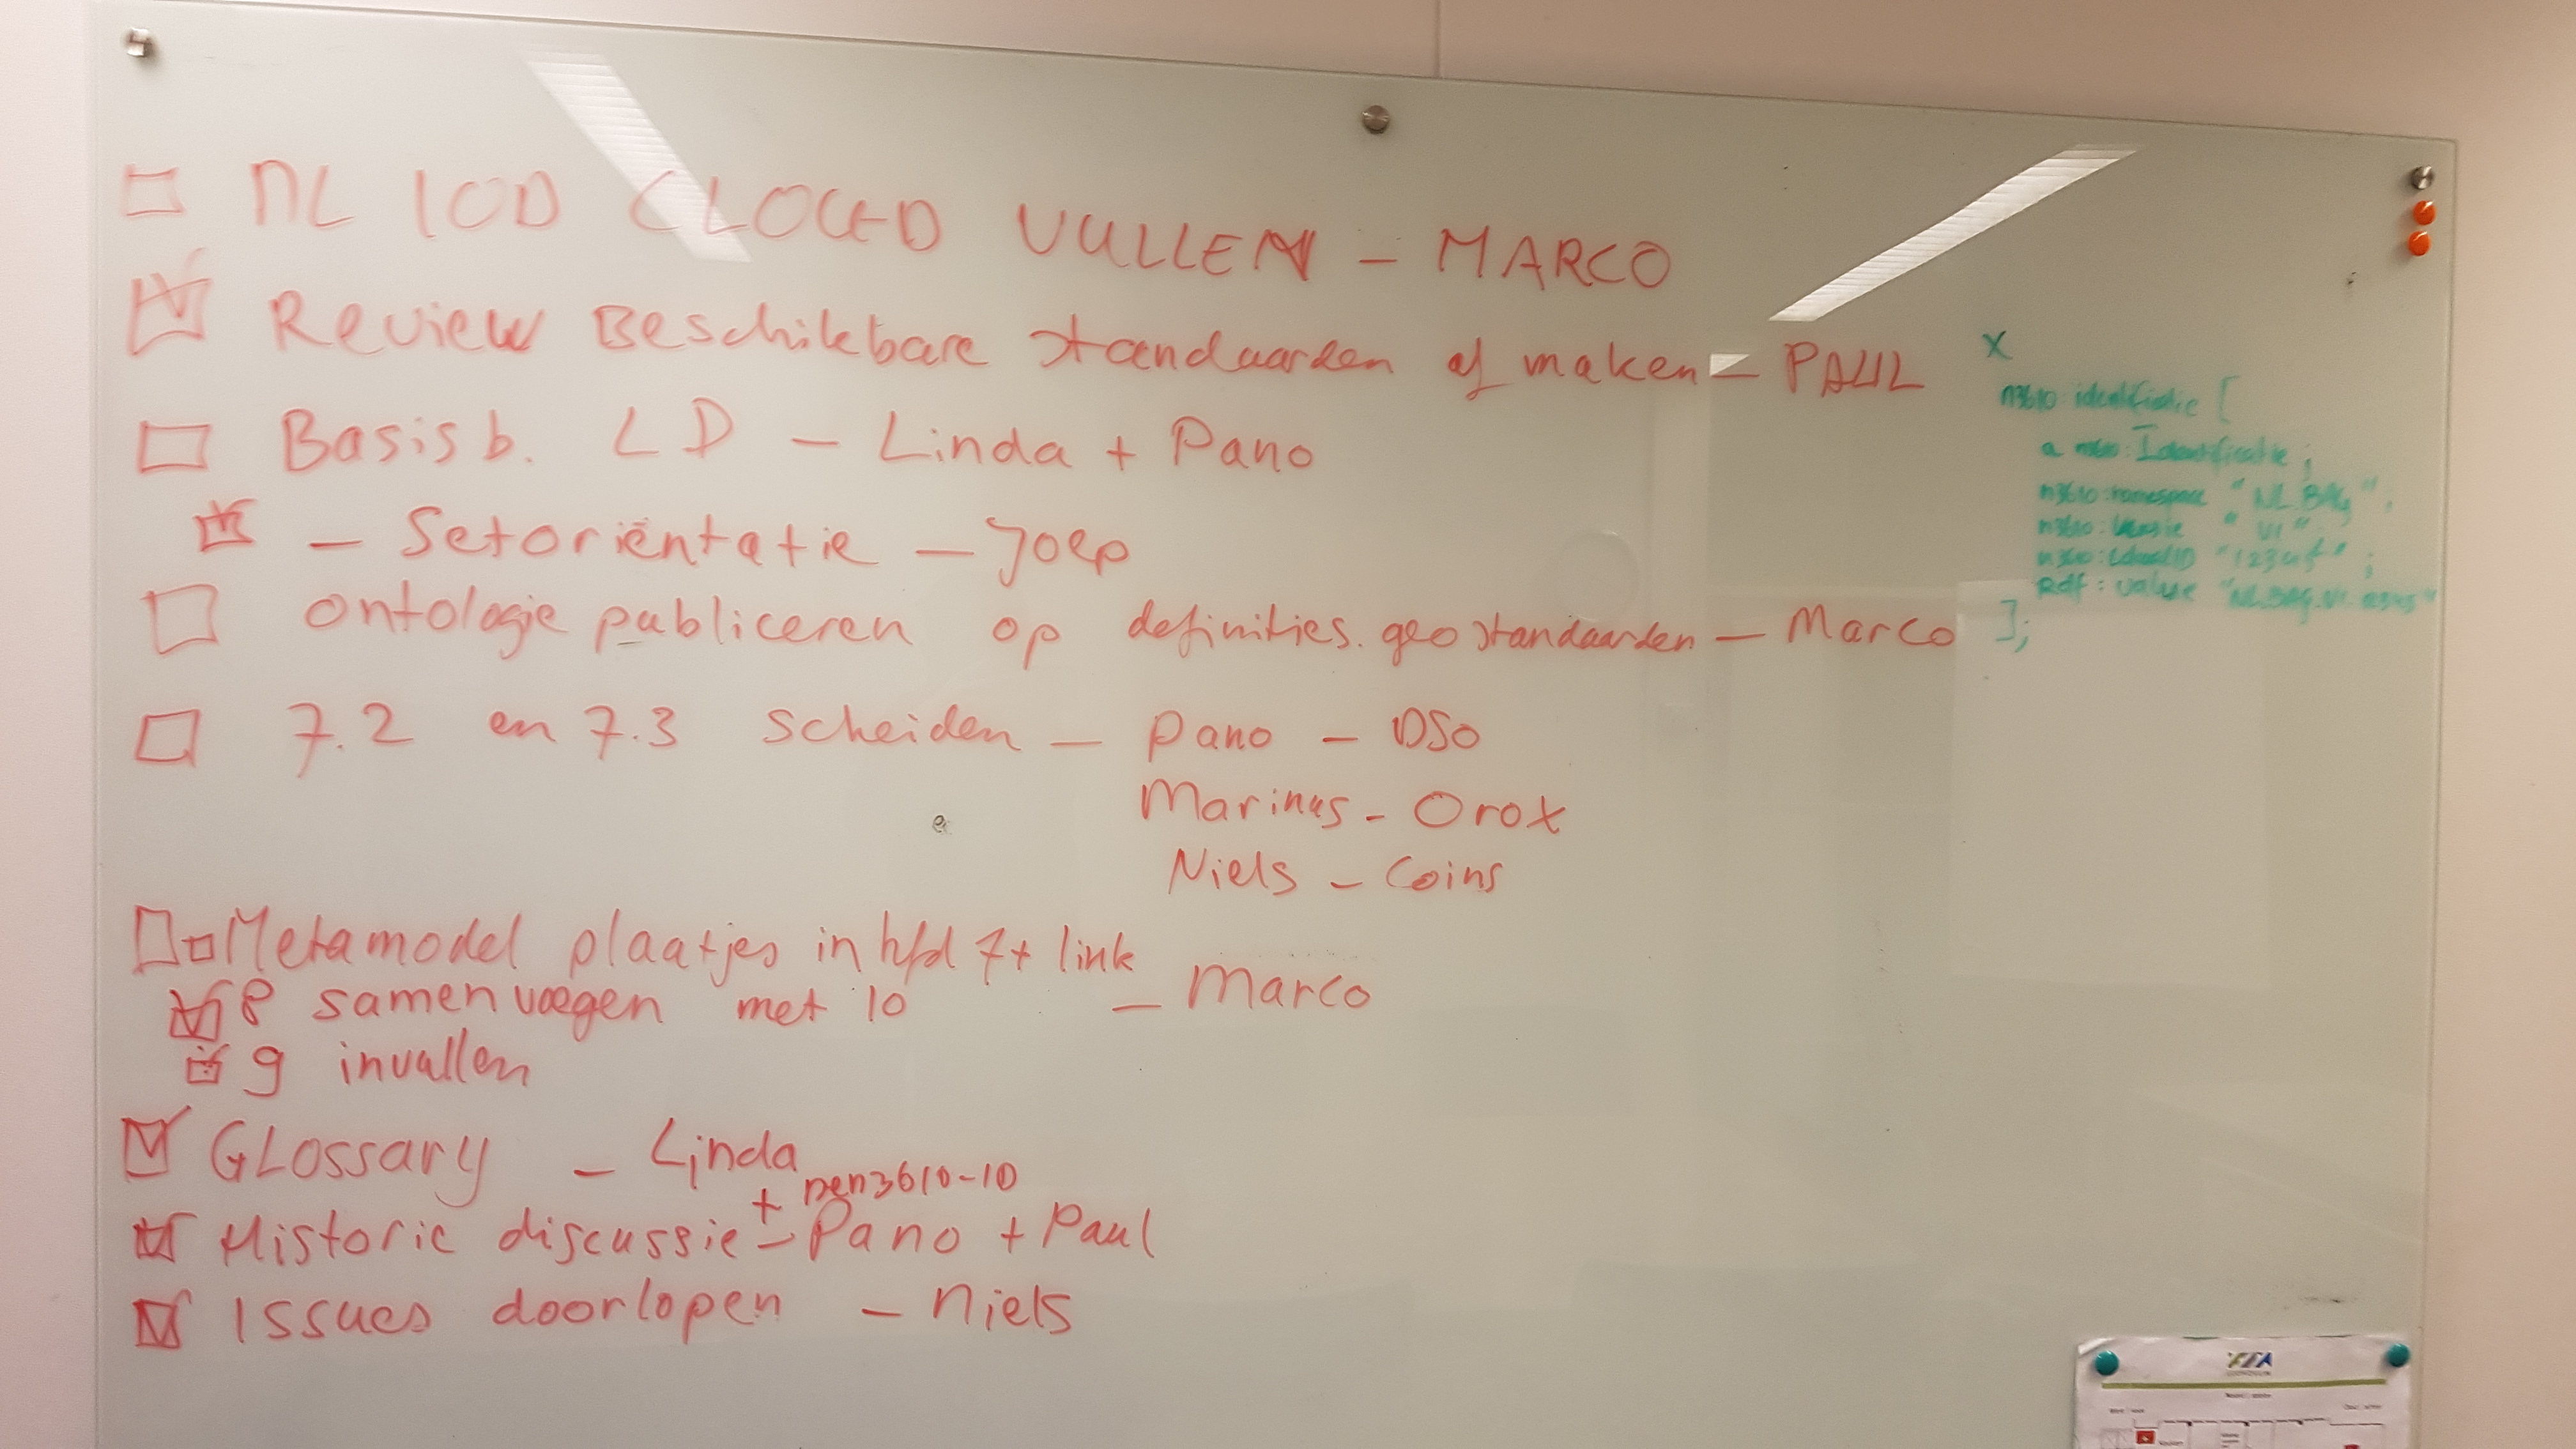 ☐ NL LOD CLOUD VULLEN – MARCO
☑ Review Beschikbare standaarden af maken – PAUL
☐ Basis b. LD – Linda + Pano
☑ – Setoriëntatie – Joep
☐ ontologie publiceren op definities.geostandaarden – Marco
☐ 7.2 en 7.3 scheiden – Pano – DSO
Marinus – Orox
Niels – Coins
☐ ☐ Metamodel plaatjes in hfd 7 + link
– Marco
☑ 8 samenvoegen met 10
☑ 9 invullen
☑ GLossary – Linda
+ nen3610-10
☑ Historie discussie – Pano + Paul
☑ Issues doorlopen – Niels
X
n3610:identificatie [
a n3610:Identificatie;
n3610:namespace "NL.BAG";
n3610:versie "V1"
n3610:lokaalID
Rdf:value
];